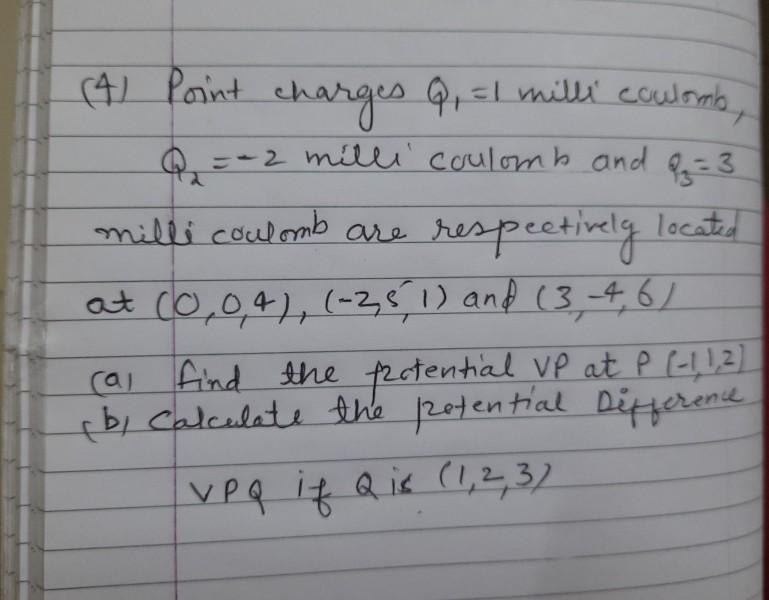 (4) Point charges Q₁ = 1 milli coulomb,
Q₂ = -2 milli coulomb and Q₃ = 3
milli coulomb are respectively located
at (0,0,4), (-2,5,1) and (3,-4,6)
(a) find the potential VP at P (-1,1,2)
(b) Calculate the potential Difference
VPQ if Q is (1,2,3)